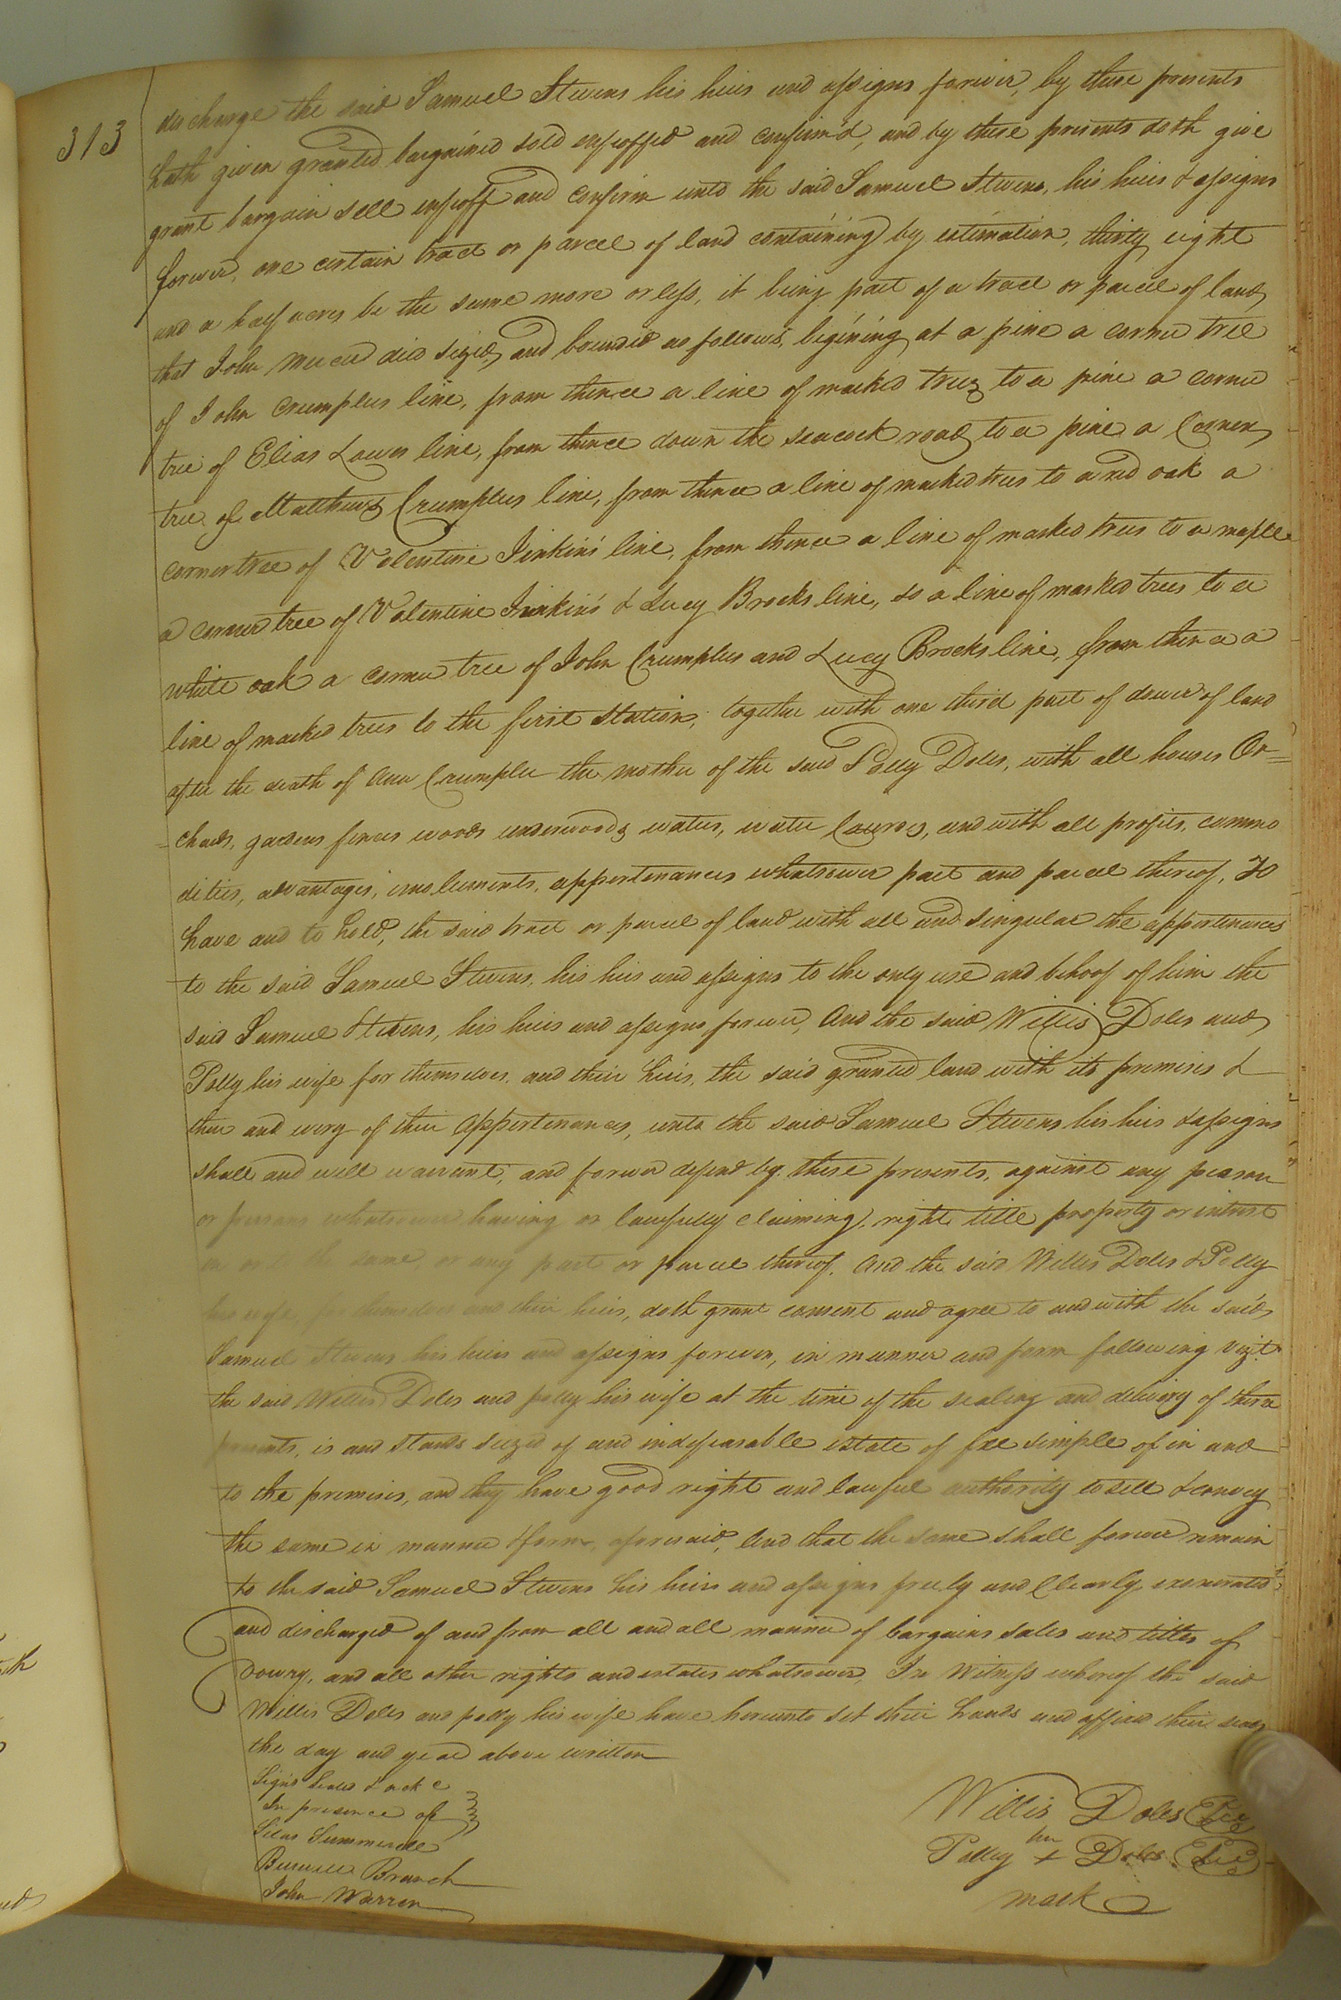 313
discharge the said Samuel Stevens his heirs and assigns forever, by these presents
hath given granted bargained sold enfeoffed and confirm'd, and by these presents doth give
grant bargain sell enfeoff and confirm unto the said Samuel Stevens, his heirs & assigns
forever, one certain tract or parcel of land containing by estimation, thirty eight
and a half acres be the same more or less, it being part of a tract or parcel of land
that John died seized, and bounded as follows, begining at a pine a corner tree
of John Crumplers line, from thence a line of marked trees to a pine a corner
tree of Elias Lawes line, from thence down the seacock road to a pine a Corner
tree of Matthews Crumplers line, from thence a line of marked trees to a red oak a
corner tree of Valentine Jinkins' line, from thence a line of marked trees to a maple
a corner tree of Valentine Jinkins & Lucy Brocks line, so a line of marked trees to a
white oak a corner tree of John Crumplers and Lucy Brocks line, from thence a
line of marked trees to the first station, together with one third part of dower of land
after the death of Ann Crumpler the mother of the said Polly Doles, with all houses Or=
=chards, gardens fences woods underwoods waters, water Courses, and with all profits, commo
dities, advantages, emoluments, appertenances whatsoever part and parcel thereof, To
have and to hold, the said tract or parcel of land with all and singular the appertenances
to the said Samuel Stevens, his heirs and assigns to the only use and behoof of him the
said Samuel Stevens, his heirs and assigns forever, And the said Willis Doles and
Polly his wife for themselves, and their heirs, the said granted land with its premises &
their and every of their Appertenances, unto the said Samuel Stevens his heirs & assigns
shall and will warrant, and forever defend by these presents, against any person
or persons whatsoever having or lawfully claiming, right title property or interest
in or to the same or any part or parcel thereof. And the said Willis Doles & Polly
his wife, for themselves and their heirs, doth grant consent and agree to and with the said
Samuel Stevens his heirs and assigns forever, in manner and form following Vizt.
the said Willis Doles and polly his wife at the time of the sealing and delivery of these
presents, is and stands seized of and indefeasable estate of fee simple of in and
to the premises, and they have good right and lawful authority to sell & convey
the same in manner & form, aforesaid, And that the same shall forever remain
to the said Samuel Stevens his heirs and assigns freely and Clearly exonerated
and discharged of and from all and all manner of bargains sales and titles of
Dowry, and all other rights and estates whatsoever, In Witness whereof the said
Willis Doles and polly his wife have hereunto set their hands and affixed their seals
the day and year above written
Sign'd Seal'd & ack'd
In presence of
Silas Summerell
Burwell Branch
John Warren
Willis Doles
her
Polly + Doles
mark